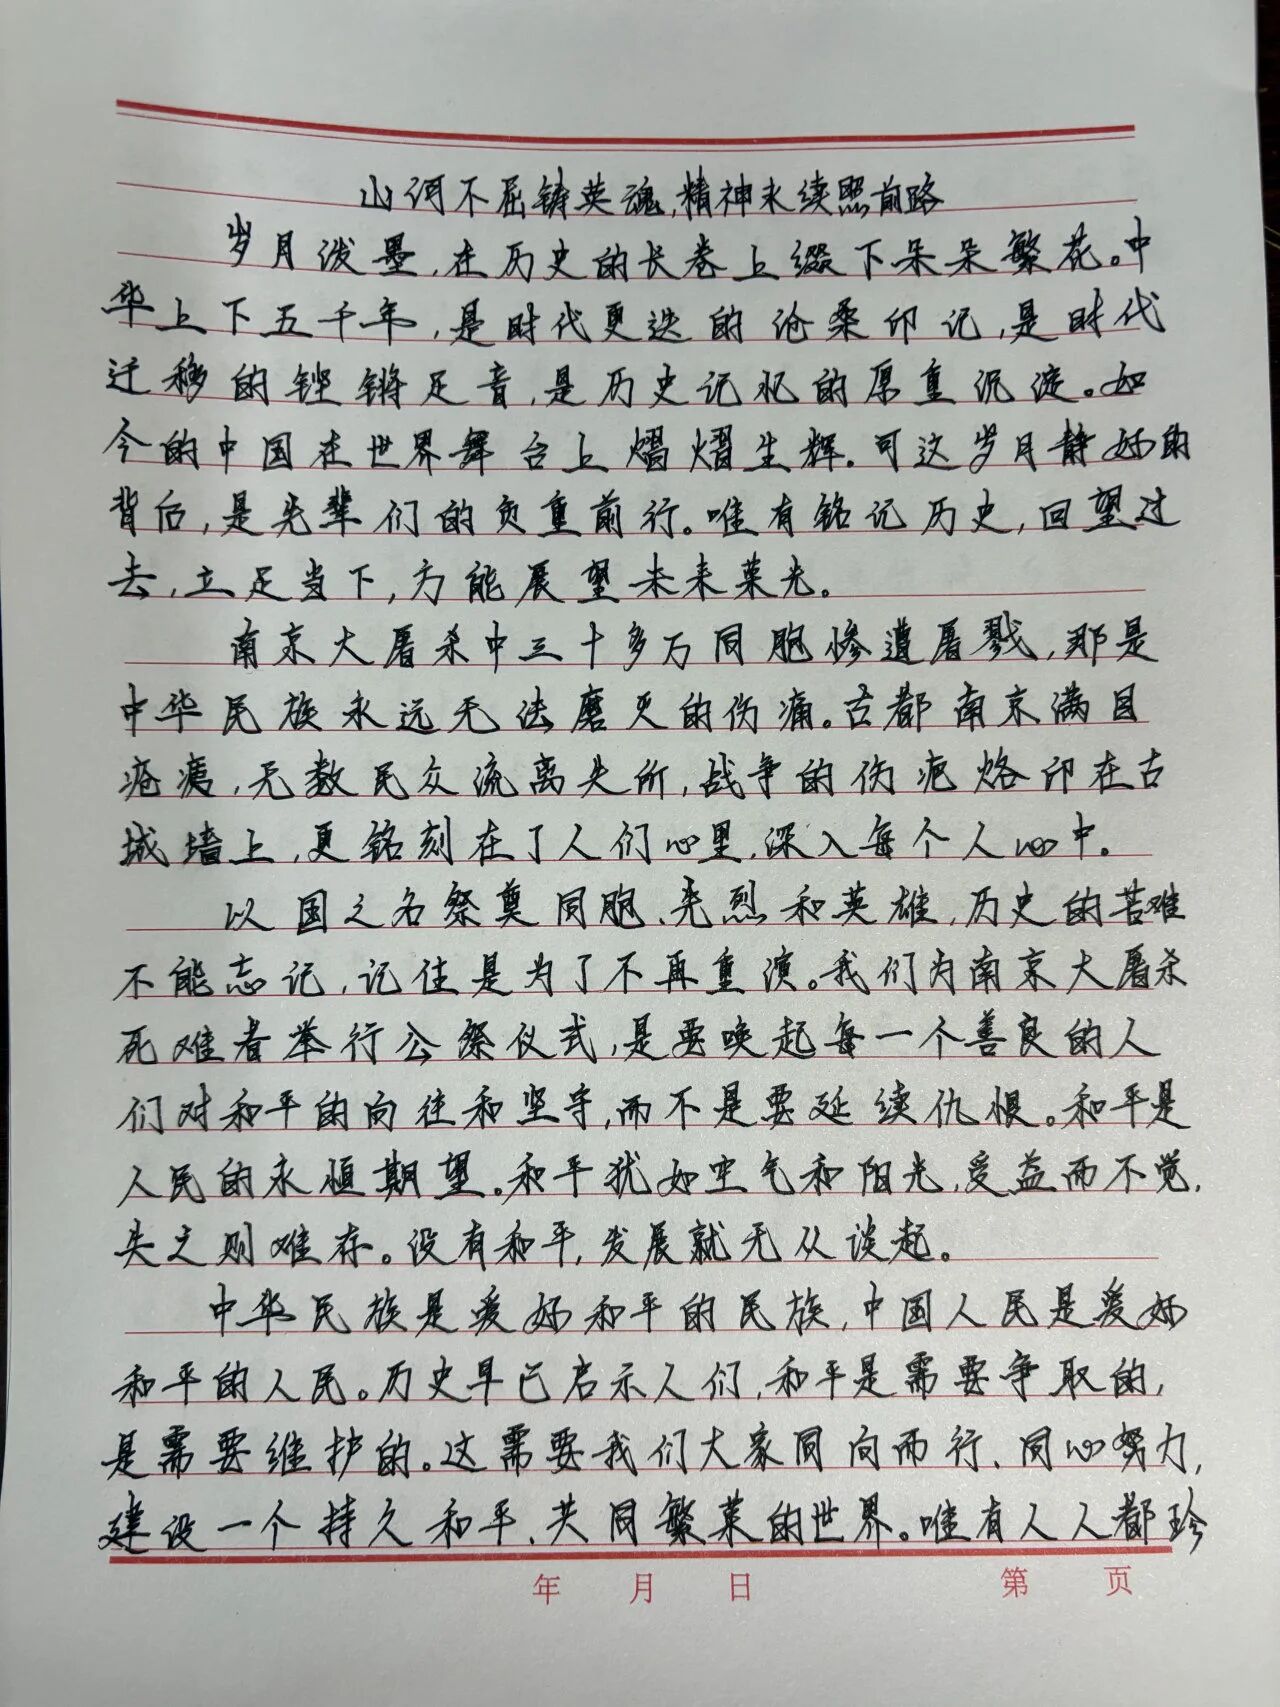 山河不屈铸英魂,精神永续照前路
岁月泼墨,在历史的长卷上缀下朵朵繁花。中
华上下五千年,是时代更迭的沧桑印记,是时代
迁移的铿锵足音,是历史记忆的厚重沉淀。如
今的中国在世界舞台上熠熠生辉。可这岁月静好的
背后,是先辈们的负重前行。唯有铭记历史,回望过
去,立足当下,方能展望未来荣光。
南京大屠杀中三十多万同胞惨遭屠戮,那是
中华民族永远无法磨灭的伤痛。古都南京满目
疮痍,无数民众流离失所,战争的伤疤烙印在古
城墙上,更铭刻在了人们心里,深入每个人心中。
以国之名祭奠同胞、先烈和英雄,历史的苦难
不能忘记,记住是为了不再重演。我们为南京大屠杀
死难者举行公祭仪式,是要唤起每一个善良的人
们对和平的向往和坚守,而不是要延续仇恨。和平是
人民的永恒期望。和平犹如空气和阳光,受益而不觉,
失之则难存。没有和平,发展就无从谈起。
中华民族是爱好和平的民族,中国人民是爱好
和平的人民。历史早已启示人们,和平是需要争取的,
是需要维护的。这需要我们大家同向而行、同心努力,
建设一个持久和平、共同繁荣的世界。唯有人人都珍
年 月 日 第 页